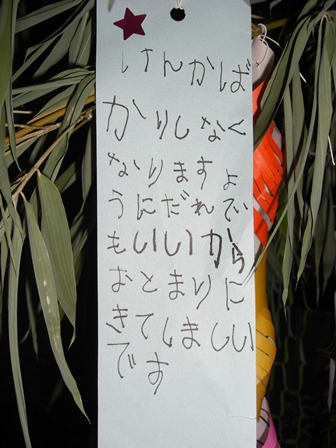 けんかば
かりしなく
なりますよ
うにだれで
もいいから
おとまりに
きてしましい
です